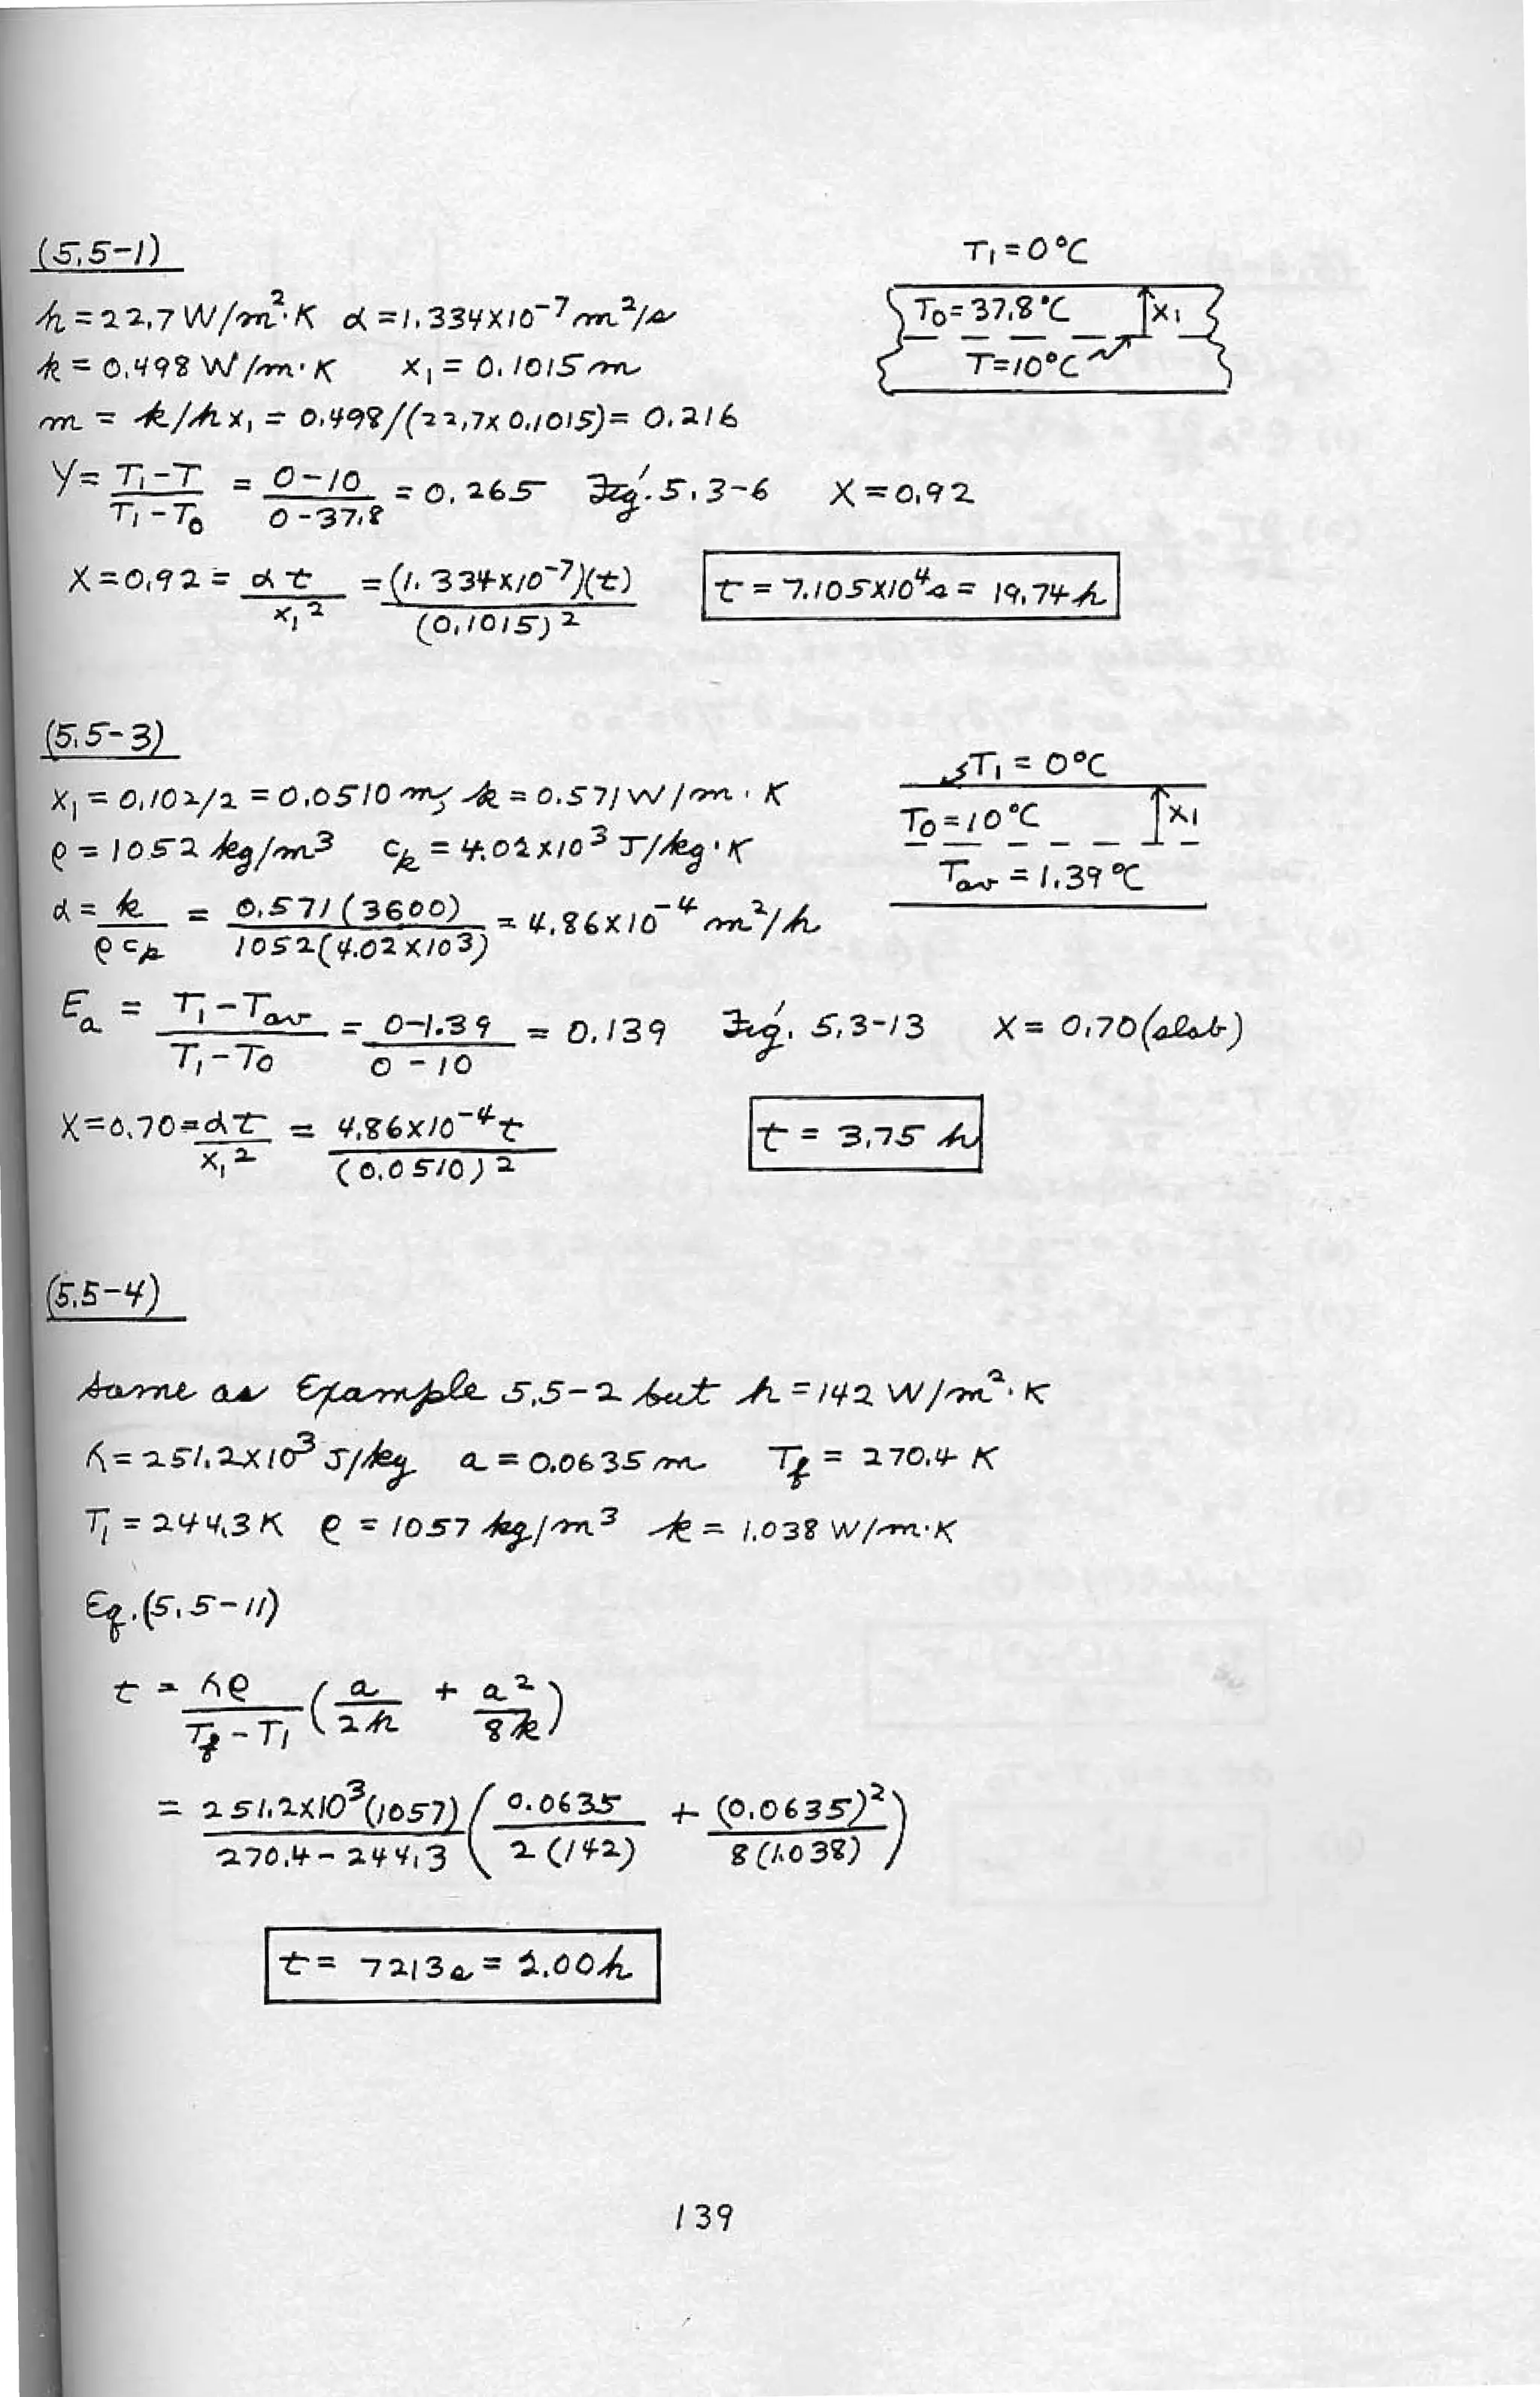 (5.5-1)
T₁ = 0°C
h = 22.7 W/m²·K α = 1.334×10⁻⁷ m²/s
T₀ = 37.8°C x₁
k = 0.498 W/m·K x₁ = 0.1015 m
T = 10°C
m = k/hx₁ = 0.498/(22.7×0.1015) = 0.216
Y = (T₁-T)/(T₁-T₀) = (0-10)/(0-37.8) = 0.265 Fig. 5.3-6 X = 0.92
X = 0.92 = αt/x₁² = (1.334×10⁻⁷)(t)/(0.1015)² t = 7.105×10⁴ s = 19.74 h
(5.5-3)
T₁ = 0°C
x₁ = 0.102/2 = 0.0510 m; k = 0.571 W/m·K
T₀ = 10°C x₁
ρ = 1052 kg/m³ cₚ = 4.02×10³ J/kg·K
Tav = 1.39°C
α = k/ρcₚ = 0.571(3600)/1052(4.02×10³) = 4.86×10⁻⁴ m²/h
Eₐ = (T₁-Tav)/(T₁-T₀) = (0-1.39)/(0-10) = 0.139 Fig. 5.3-13 X = 0.70 (slab)
X = 0.70 = αt/x₁² = 4.86×10⁻⁴t/(0.0510)² t = 3.75 h
(5.5-4)
Same as Example 5.5-2 but h = 142 W/m²·K
λ = 251.2×10³ J/kg a = 0.0635 m T_f = 270.4 K
T₁ = 244.3 K ρ = 1057 kg/m³ k = 1.038 W/m·K
Eq. (5.5-11)
t = λρ/(T_f - T₁) (a/2h + a²/8k)
= 251.2×10³(1057)/(270.4 - 244.3) (0.0635/2(142) + (0.0635)²/8(1.038))
t = 7213 s = 2.00 h
139